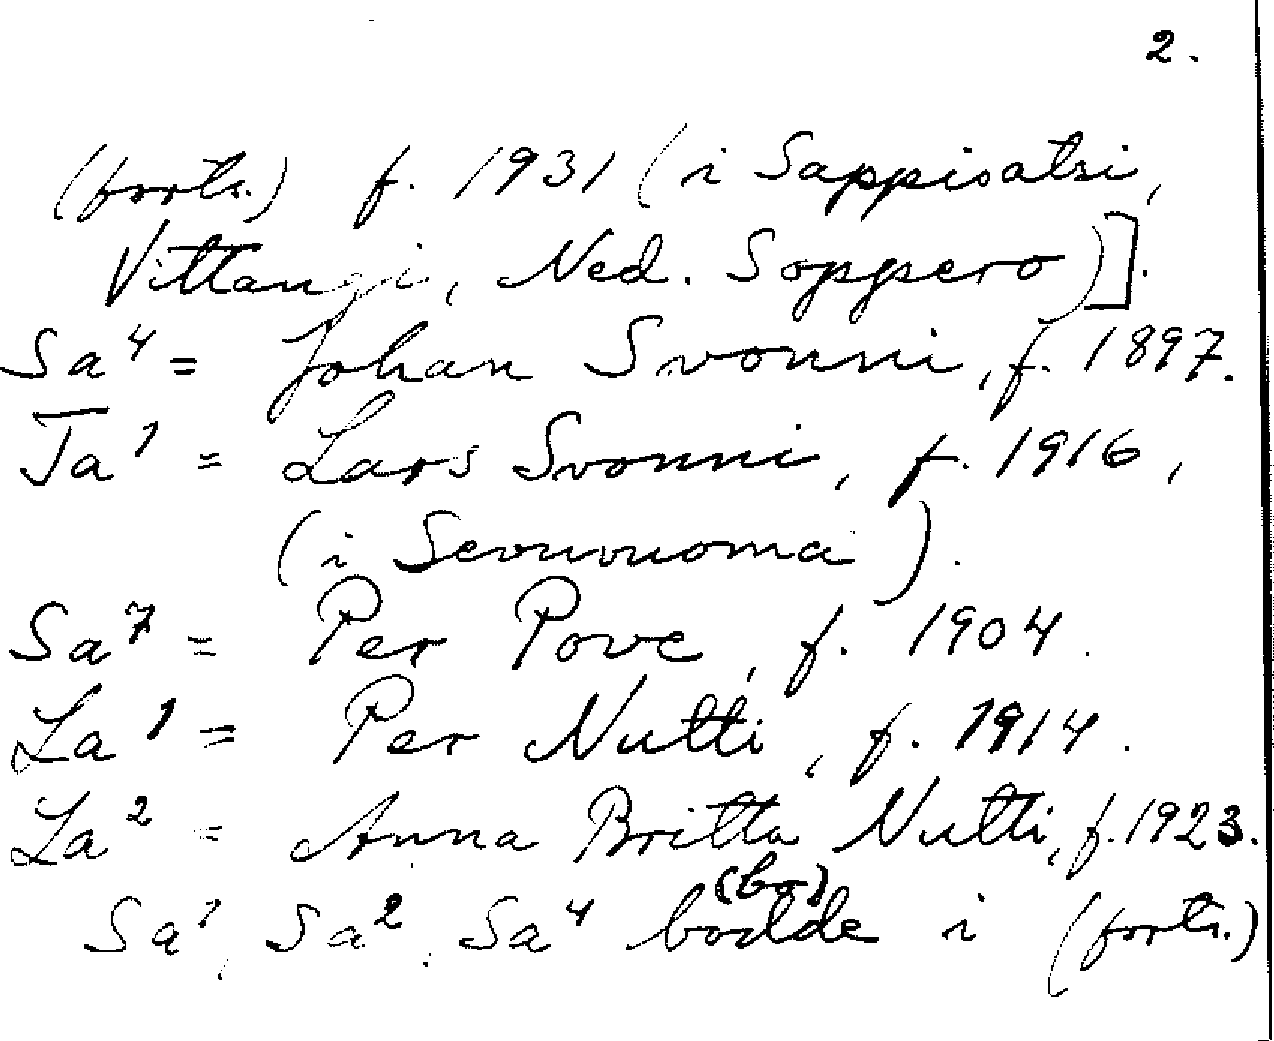 2.
(forts.) f. 1931 (i Sappisatsi,
Vittangi, Ned. Soppero)].
Sa⁴ = Johan Svonni, f. 1897.
Ta¹ = Lars Svonni, f. 1916,
(i Sevuvuoma).
Sa⁷ = Per Pove, f. 1904.
La¹ = Per Nutti, f. 1914.
La² = Anna Britta Nutti, f. 1923.
(bo)
Sa¹, Sa², Sa⁴ bodde i (forts.)